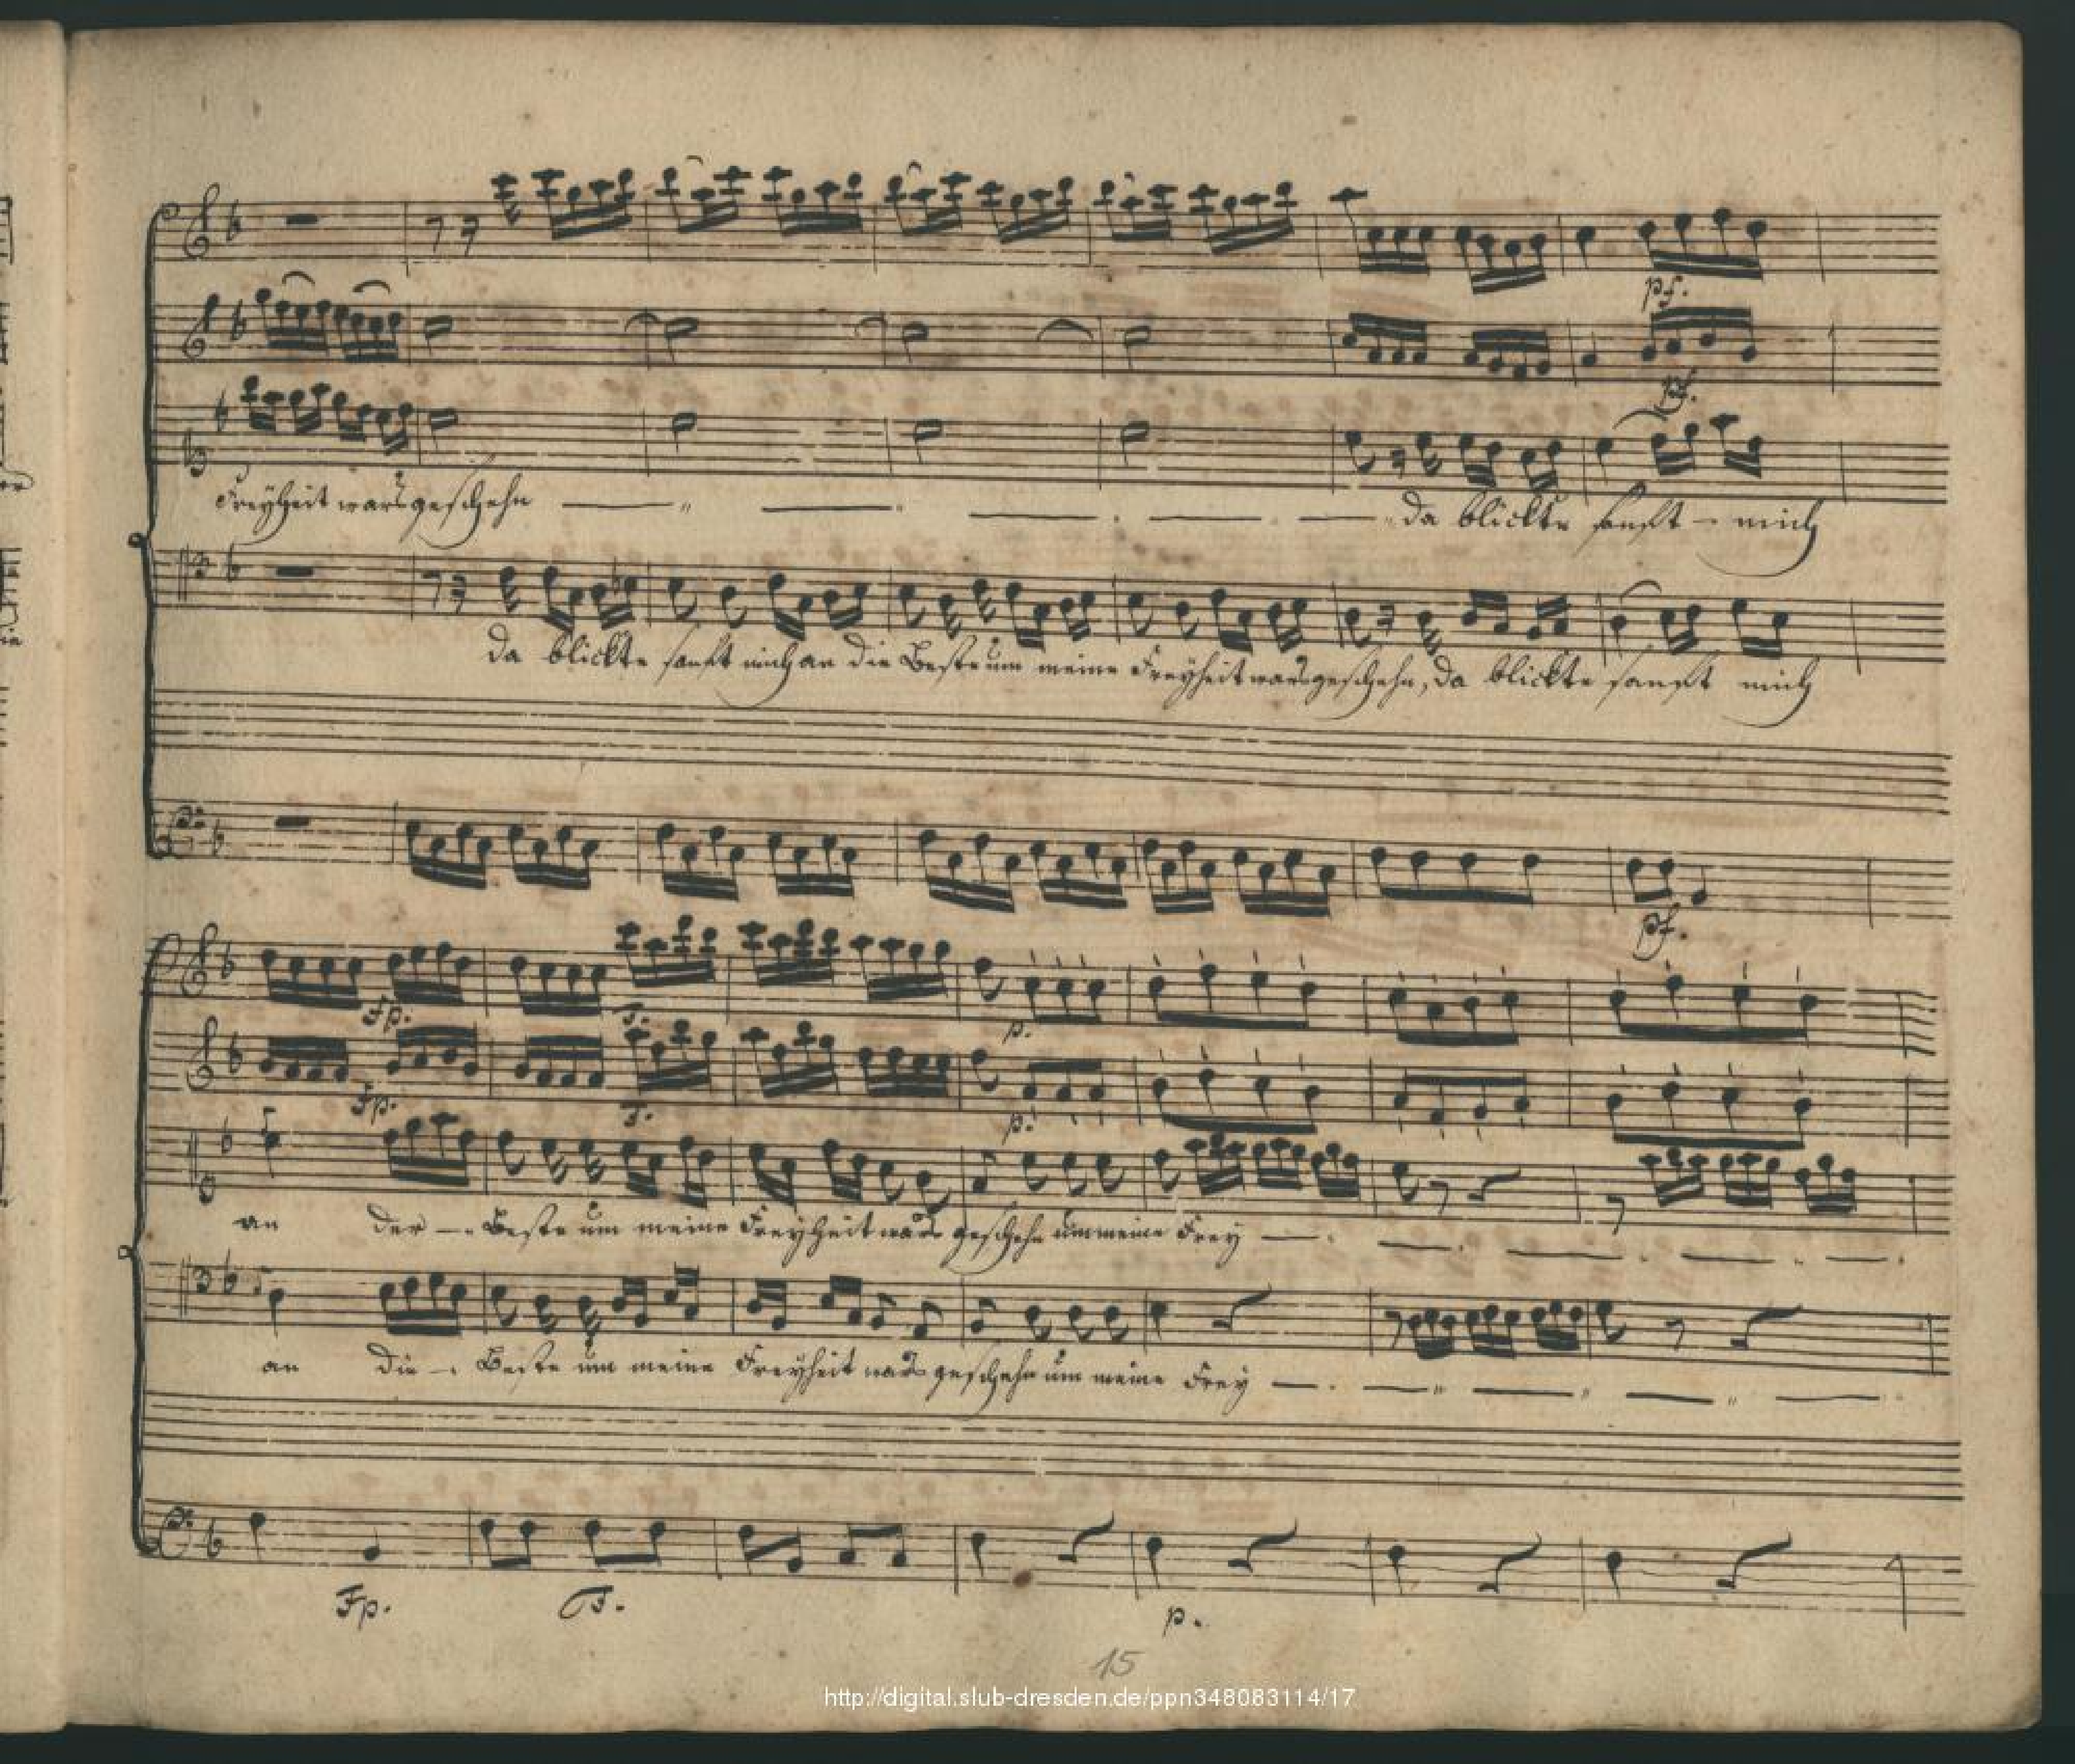 pf.
pf.
Freyheit wars geschehn da blickte sanft mich
da blickte sanft mich an die Beste um meine Freyheit wars geschehn, da blickte sanft mich
pf.
Fp. F. p.
Fp. F. p.
an der Beste um meine Freyheit wars geschehn um meine Frey
an die Beste um meine Freyheit wars geschehn um meine Frey
Fp. F. p.
15
http://digital.slub-dresden.de/ppn348083114/17